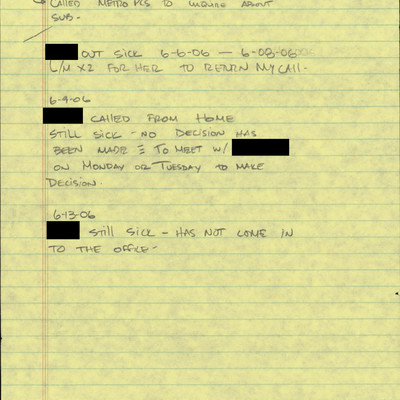 CALLED METRO PCS TO INQUIRE ABOUT
SUB-
OUT SICK 6-6-06 — 6-08-06
L/M X2 FOR HER TO RETURN MY CALL-
6-9-06
CALLED FROM HOME
STILL SICK - NO DECISION HAS
BEEN MADE TO MEET W/
ON MONDAY OR TUESDAY TO MAKE
DECISION.
6-13-06
STILL SICK - HAS NOT COME IN
TO THE OFFICE-